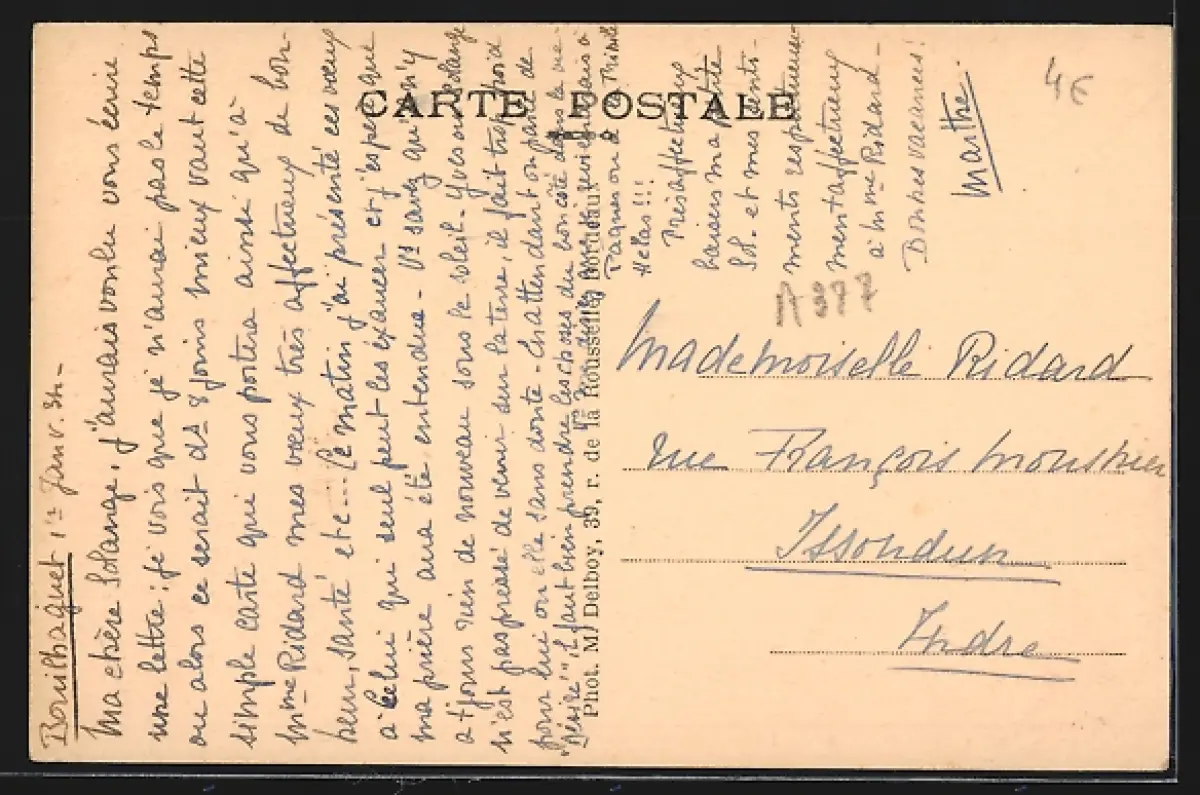 Bouilhaguet 1er Janv. 34 -
Ma chère Solange, j'aurais voulu vous écrire
une lettre ; je vois que je n'aurai pas le temps
ou alors ce serait ds 8 jours mieux vaut cette
simple carte qui vous portera ainsi qu'à
Mme Ridard mes vœux très affectueux de bon-
heur, santé etc... Ce matin j'ai présenté ces vœux
à Celui qui seul peut les exaucer et j'espère que
ma prière aura été entendue - Vs savez qu'il n'y
a tjours rien de nouveau sous le soleil - Yves ou Solange
n'est pas pressé de venir sur la terre, il fait trop froid
pour lui ou elle sans doute - En attendant on parle de
"Désiré" il faut bien prendre les choses du bon côté dans la vie
Pâques ou à la Trinité
Hélas !!!
Très affectueux
baisers ma petite
Sol. et mes senti-
ments respectueuse-
ment affectueux
à Mme Ridard -
Bonnes vacances !
Marthe
CARTE POSTALE
Phot. M. Delboy, 39, r. de la Rousselle, Bordeaux
Mademoiselle Ridard
rue François
Issoudun
Indre